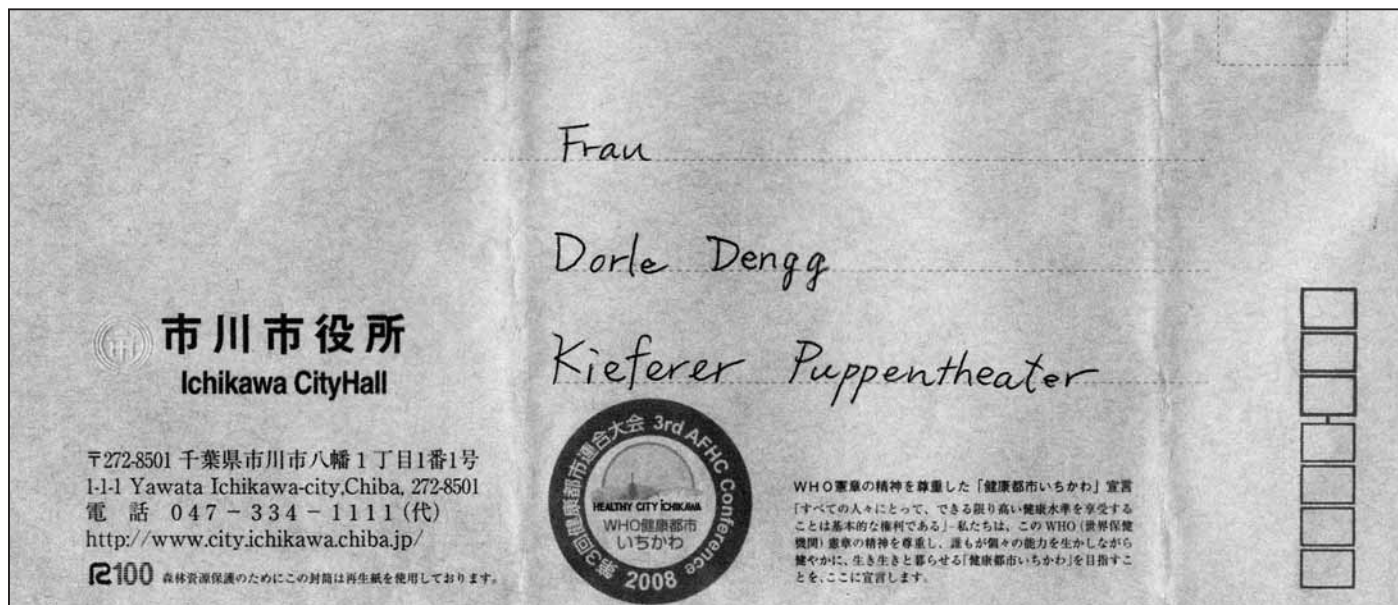 Frau
Dorle Dengg
Kieferer Puppentheater
市川市役所
Ichikawa CityHall
〒272-8501 千葉県市川市八幡1丁目1番1号
1-1-1 Yawata Ichikawa-city,Chiba, 272-8501
電 話 047-334-1111(代)
http://www.city.ichikawa.chiba.jp/
R100 森林資源保護のためにこの封筒は再生紙を使用しております。
第3回健康都市連合大会 3rd AFHC Conference
HEALTHY CITY ICHIKAWA
WHO健康都市
いちかわ
2008
WHO憲章の精神を尊重した「健康都市いちかわ」宣言
「すべての人々にとって、できる限り高い健康水準を享受する
ことは基本的な権利である」-私たちは、このWHO(世界保健
機関)憲章の精神を尊重し、誰もが個々の能力を生かしながら
健やかに、生き生きと暮らせる「健康都市いちかわ」を目指すこ
とを、ここに宣言します。